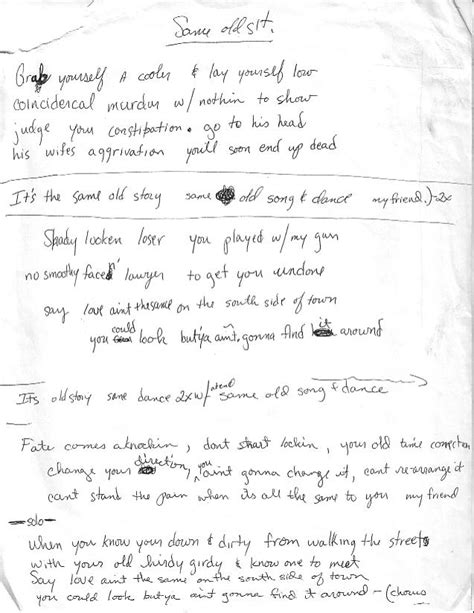 Same old S+.
Grab yourself a cooler & lay yourself low
coincidencal murdur w/ nothin to show
judge your constipation. go to his head
his wifes aggrivation you'll soon end up dead
It's the same old story same old song & dance my friend.) 2x
Shady looken loser you played w/ my gun
no smoothy facen' lawyer to get you undone
say love aint the same on the south side of town
you could look but ya aint gonna find it around
It's old story same dance 2x w/ same old song & dance
Fate comes a knockin, dont start lockin, your old time correction
change your direction, you aint gonna change it, cant re-arrange it
cant stand the pain when its all the same to you my friend
-solo-
when you know your down & dirty from walking the streets
with your old hurdy girdy & know one to meet
Say love aint the same on the south side of town
you could look but ya aint gonna find it around - (chorus